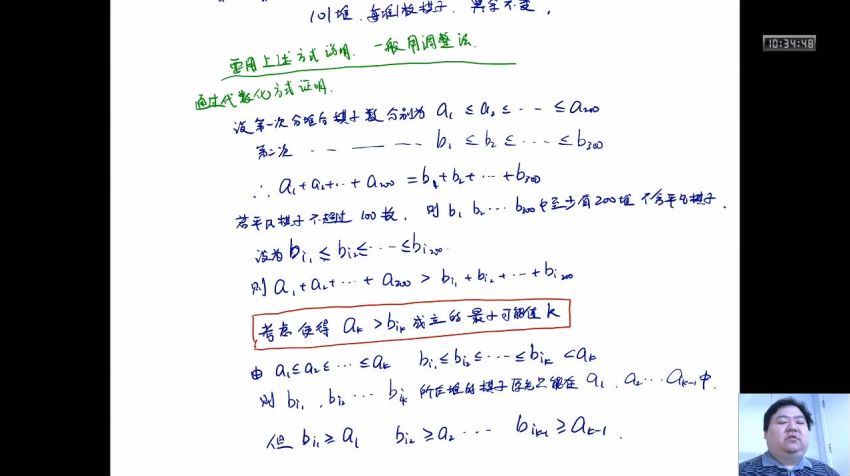 101堆，每堆1枚棋子．其余不变．
10:34:48
要用上述方式说明．一般用调整法．
通过代数化方式证明．
设第一次分堆后棋子数分别为 a₁ ≤ a₂ ≤ ⋯ ≤ a₂₀₀
第二次 ⋯ — — — b₁ ≤ b₂ ≤ ⋯ ≤ b₃₀₀
∴ a₁+a₂+⋯+a₂₀₀ = b₁+b₂+⋯+b₃₀₀
若平凡棋子不超过100枚，则 b₁ b₂⋯b₃₀₀中至少有200堆不含平凡棋子．
设为 bi₁ ≤ bi₂ ≤ ⋯ ≤ bi₂₀₀.
则 a₁+a₂+⋯+a₂₀₀ > bi₁+bi₂+⋯+bi₂₀₀
考虑使得 aₖ > biₖ 成立的最小可能值 k
由 a₁≤a₂≤⋯≤aₖ bi₁≤bi₂≤⋯≤biₖ<aₖ
则 bi₁，bi₂ ⋯ biₖ 所在堆的棋子原先只能在 a₁，a₂⋯aₖ₋₁中．
但 bi₁≥a₁ bi₂≥a₂ ⋯ biₖ₋₁≥aₖ₋₁．